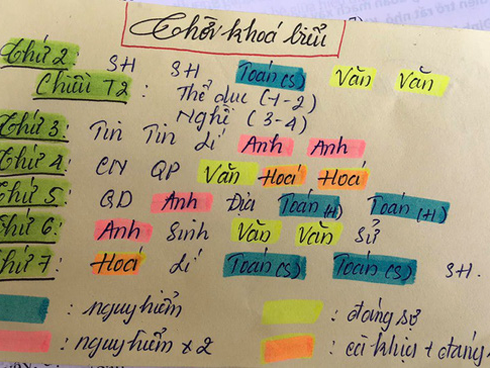 Thời khoá biểu
Thứ 2: SH SH Toán(s) Văn Văn
Chiều T2: Thể dục (1-2)
Nghề (3-4)
Thứ 3: Tin Tin Lí Anh Anh
Thứ 4: CN QP Văn Hoá Hoá
Thứ 5: QD Anh Địa Toán(H) Toán(H)
Thứ 6: Anh Sinh Văn Văn Sử
Thứ 7: Hoá Lí Toán(s) Toán(s) SH.
: nguy hiểm : đáng sợ
: nguy hiểm x 2 : cả khịu + đáng